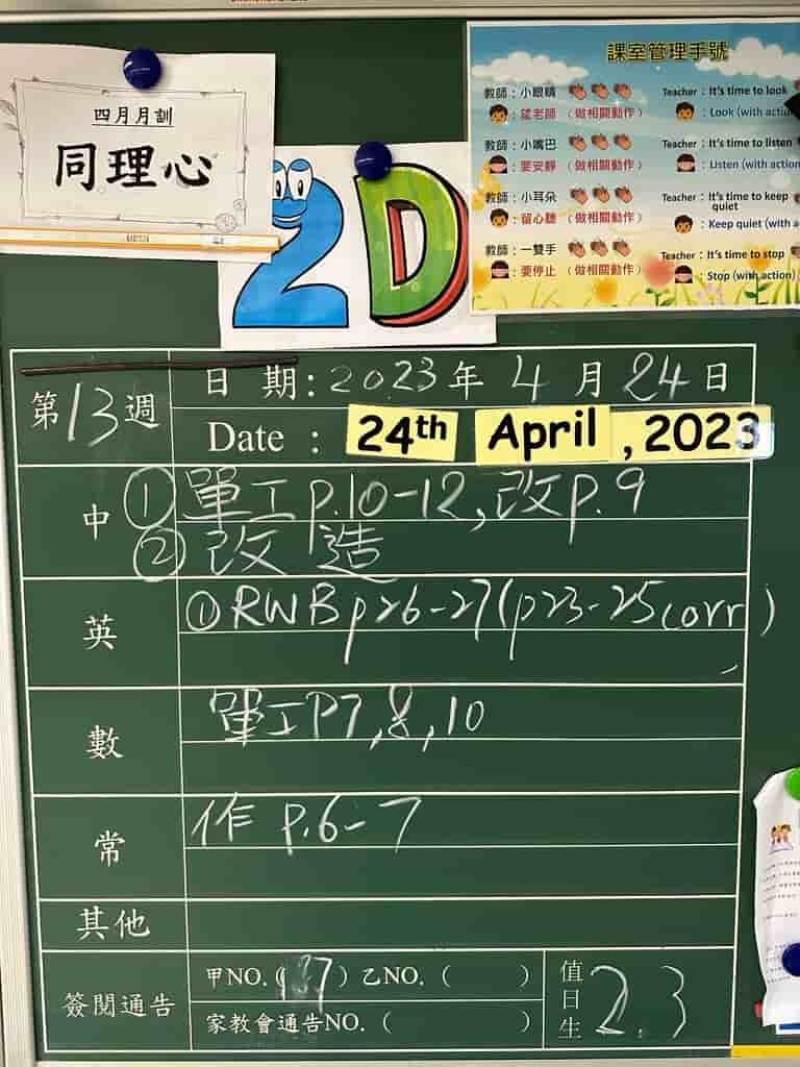 四月月訓
同理心
2D
課室管理手號
教師：小眼睛 Teacher : It's time to look
：望老師 （做相關動作） : Look (with actio
教師：小嘴巴 Teacher : It's time to listen
：要安靜 （做相關動作） : Listen (with action
教師：小耳朵 Teacher : It's time to keep quiet
：留心聽 （做相關動作） : Keep quiet (with a
教師：一雙手 Teacher : It's time to stop
：要停止 （做相關動作） : Stop (with action)
第13週 日 期：2023年 4 月 24 日
Date : 24th April , 2023
中 ① 單工p.10-12,改p.9
② 改 造
英 ① RWB p26-27(p23-25corr)
數 單工P7,8,10
常 作 p.6-7
其他
簽閱通告 甲NO.(137) 乙NO. ( )
家教會通告NO. ( )
值日生 2.3